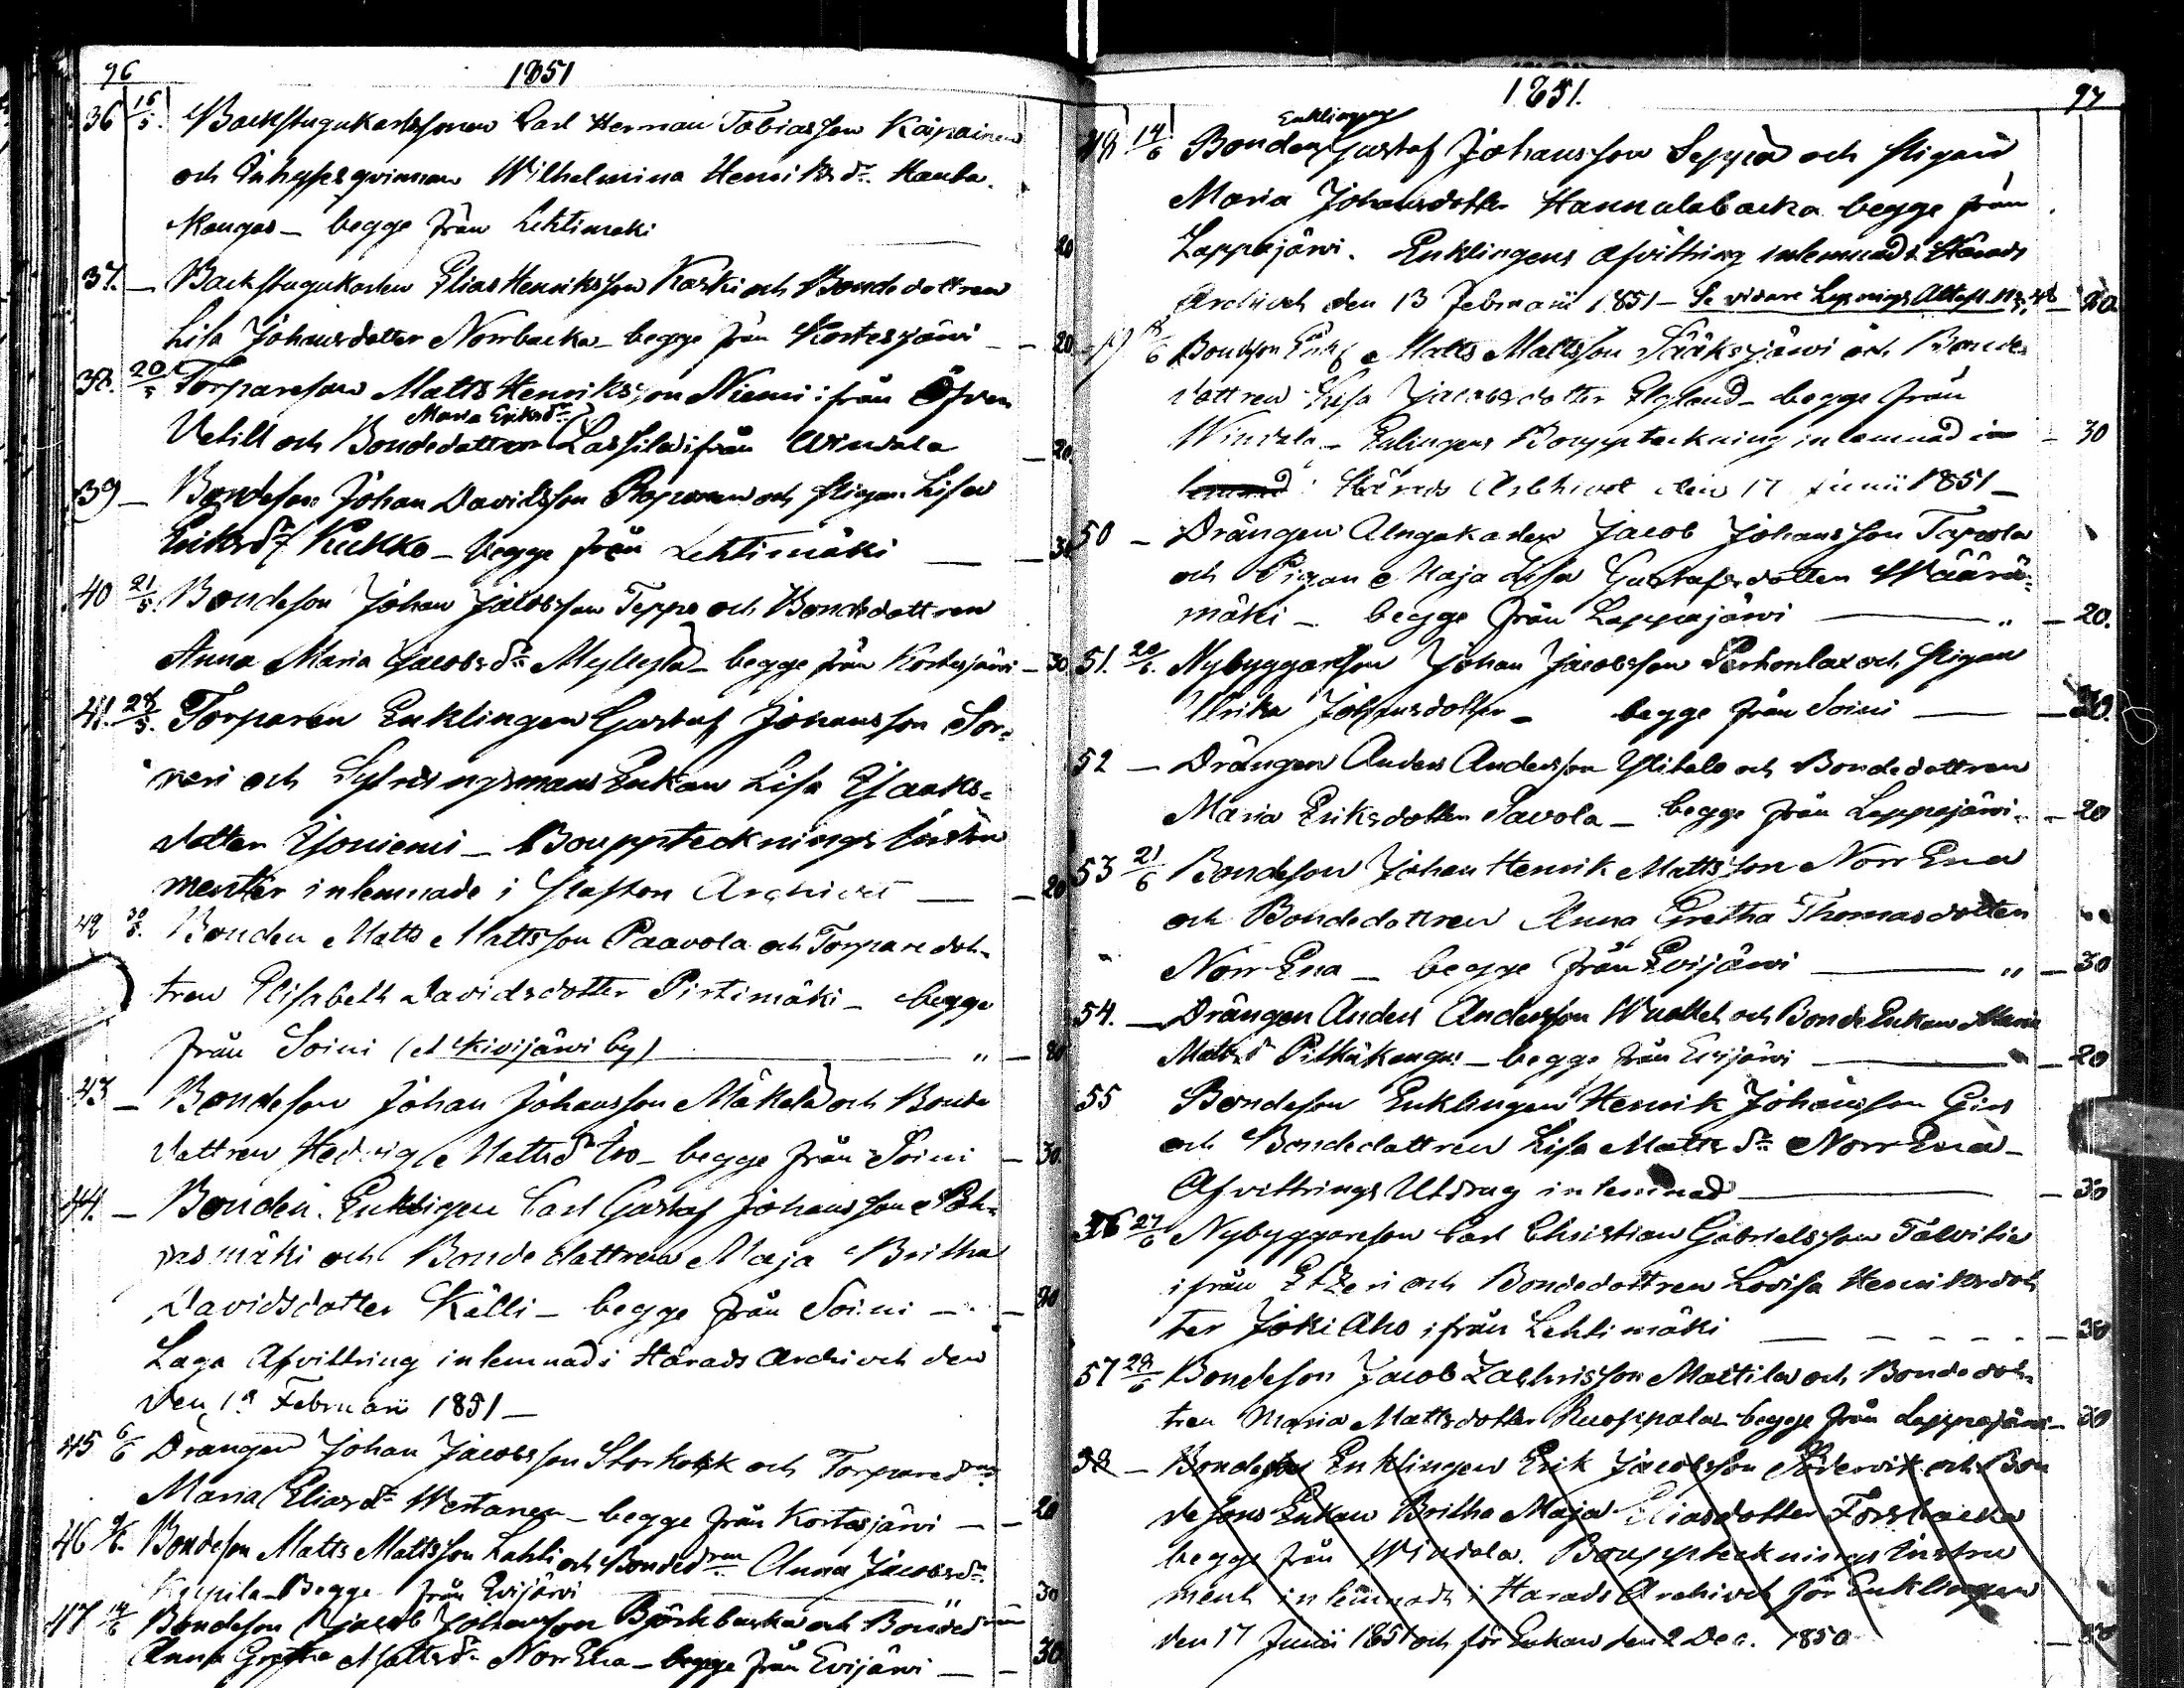 96
1851
36 16/5. Backstugukarlssonen Carl Herman Tobiasson Kaipainen
och Inhysesqvinnan Wilhelmina Henriksdr. Kauha-
kangas – begge från Lehtimäki 20
37. – Backstugukarlen Elias Henriksson Koski och Bondedottren
Lisa Johansdotter Norrbacka – begge från Kortesjärvi – 20
38. 20/5 Torparesonen Matts Henriksson Niemi ifrån Öfver
Maria Eriksdr
Vetill och Bondedottren Lassila ifrån Windala – 20.
39 – Bondeson Johan Davidsson och Pigan Lisa
Eriksdr Kukko – begge från Lehtimäki – 30
40 21/5. Bondeson Johan Jacobsson Teppo och Bondedottren
Anna Maria Jacobsdr Myllylä – begge från Kortesjärvi – 30
41. 28/5. Torparen Enklingen Gustaf Johansson Sor-
veri och Sytningsmans Enkan Lisa Isaaks-
dotter Isoniemi – Bouppteckningsinstru
menter inlemnade i Pastors Archivet – 20
42 30/5. Bonden Matts Mattsson Paavola och Torparedot-
tren Elisabeth Davidsdotter Pirtimäki – begge
från Soini (et Kivijärvi by) " – 20
43 – Bondeson Johan Johansson Mäkelä och Bonde
dottren Hedvig Mattsdr – begge från Soini – 30.
44. – Bonden Enklingen Carl Gustaf Johansson
mäki och Bondedottren Maja Britha
Davidsdotter Källi – begge från Soini – 20
Laga Afvittring inlemnad i Härads Archivet den
den 1a Februarii 1851 –
45 6/6 Drängen Johan Jacobsson Storkock och Torpared
Maria Eliasdr Westanen – begge från Kortesjärvi – 20
46 Bondeson Matts Mattsson Lahti och Bonded Anna Jacobsdr
Begge från Evijärvi " 30
47 14/6 Bondeson Jacob Johansson Björkbacka och Bonded
Anna Gretha Mattsdr Norr Ena – begge från Evijärvi – 30
1851.
97
Enklingen
48 14/6 Bonden Gustaf Johansson Seppä och Pigan
Maria Johansdotter Hannulabacka begge från
Lappajärvi. Enklingens afvittring inlemnad i Härads
Archivet den 13 Februarii 1851 – Se vidare Lysnings Attest No 48 – 20
Bondeson Matts Mattsson Sääksjärvi och Bonde
dottren Lisa Jacobsdotter Elgland – begge från
Windala – Enlingens Bouppteckning inlemnad – 30
i Härads Archivet den 17 Junii 1851 –
50 – Drängen Jacob Johansson Tapola
och Pigan Maja Lisa Gustafsdotter Määrä-
mäki – begge från Lappajärvi " – 20.
51. 20/6. Nybyggareson Johan Jacobsson Perhonlax och Pigan
Ulrika Johansdotter – begge från Soini – 20.
52 – Drängen Anders Andersson Ylitalo och Bondedottren
Maria Eriksdotter Savola – begge från Lappajärvi – 20
53 21/6 Bondeson Johan Henrik Mattsson Norr Ena
och Bondedottren Anna Gretha Thomasdotter
Norr Ena – begge från Evijärvi " – 30
54. – Drängen Anders Andersson och BondeEnkan Maria
Mattsd Pitkäkangas – begge från Evijärvi – 20
55 Bondeson Enklingen Henrik Johansson Girs
och Bondedottren Lisa Mattsdr Norr Ena –
Afvittrings Utdrag inlemnad – 30
56 27/6 Nybyggareson Carl Christian Gabrielsson Talvitie
ifrån Etzeri och Bondedottren Lovisa Henriksdot
ter Joki Aho ifrån Lehtimäki – 30
57 28/6 Bondeson Jacob Zachrisson Mattila och Bondedot-
tren Maria Mattsdotter Ruoppala – begge från Lappajärvi – 30
58 – Bondeson Enklingen Erik Jacobsson Södervik och Bon
desons Enkan Britha Maja Eliasdotter Forsbacka
begge från Windala. Bouppteckningsinstru
ment inlemnadt i Härads Archivet för Enklingen
den 17 Junii 1851 och för Enkan den 2 Dec. 1850 – 30